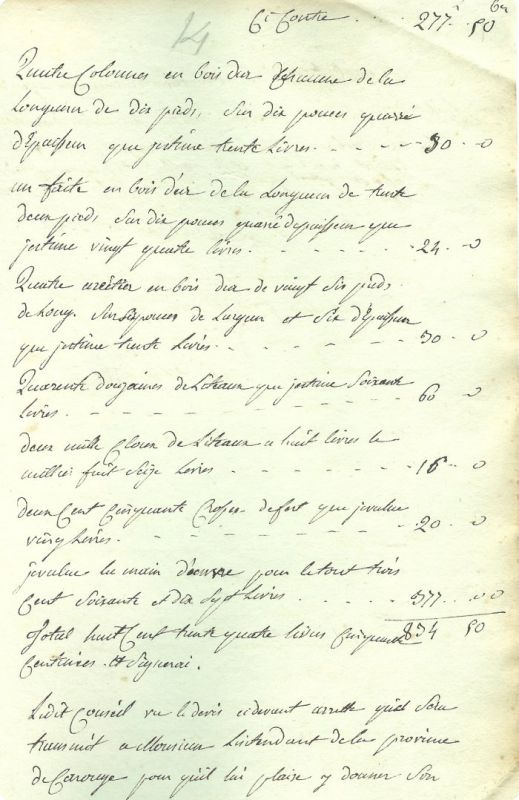 14 Ci Contre . . . . 277 " 50
Quatre Colonnes en bois dur chacune de la
Longueur de dix pieds, sur dix pouces quarré
d'Epaisseur que j'estime trente Livres - - - - 30 - 0
un faite en bois dur de la Longueur de trente
deux pieds sur dix pouces quarré d'epaisseur que
j'estime vingt quatre livres. - - - - - - 24 - 0
Quatre arrêtier en bois dur de vingt six pieds
de Long. sur six pouces de Largeur et six d'Epaisseur
que j'estime trente Livres - - - - - - 30 - 0
Quarente douzaines de Liteaux que j'estime Soixante
livres. - - - - - - - - - - 60 - 0
deux mille Cloux de Liteaux a huit livres le
millier fait Seize Livres - - - - - - 16 - 0
deux Cent Cinquante de fert que j'evalue
vingt Livres. - - - - - - - - 20 - 0
j'evalue la main d'oeuvre pour le tout trois
Cent Soixante et dix Sept Livres - - - - - 377 - 00
Total huit Cent trente quatre livres Cinquante 834 50
Centimes. et Signerai.
Ledit Conseil vu le devis cidevant arrette quil Sera
transmit a Monsieur Lintendant de la province
de Carouge pour quil lui plaise y donner Son